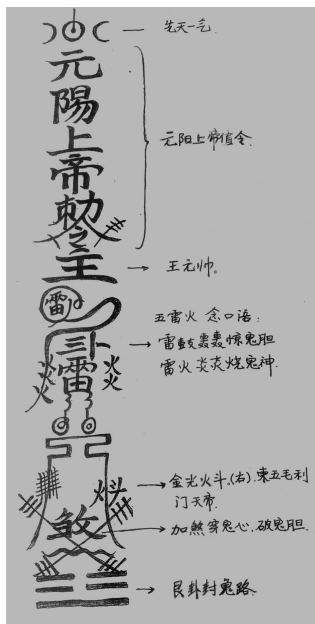 先天一气
元
陽
上
帝
勅
元阳上帝值令.
主
王元帅。
雷
五雷火 念口语:
雷鼓轰轰惊鬼胆
雷
雷火炎炎烧鬼神.
火 火
火 火
金光火斗.(右).東五毛利
门天帝.
煞
加煞穿鬼心.破鬼胆.
艮卦封鬼路